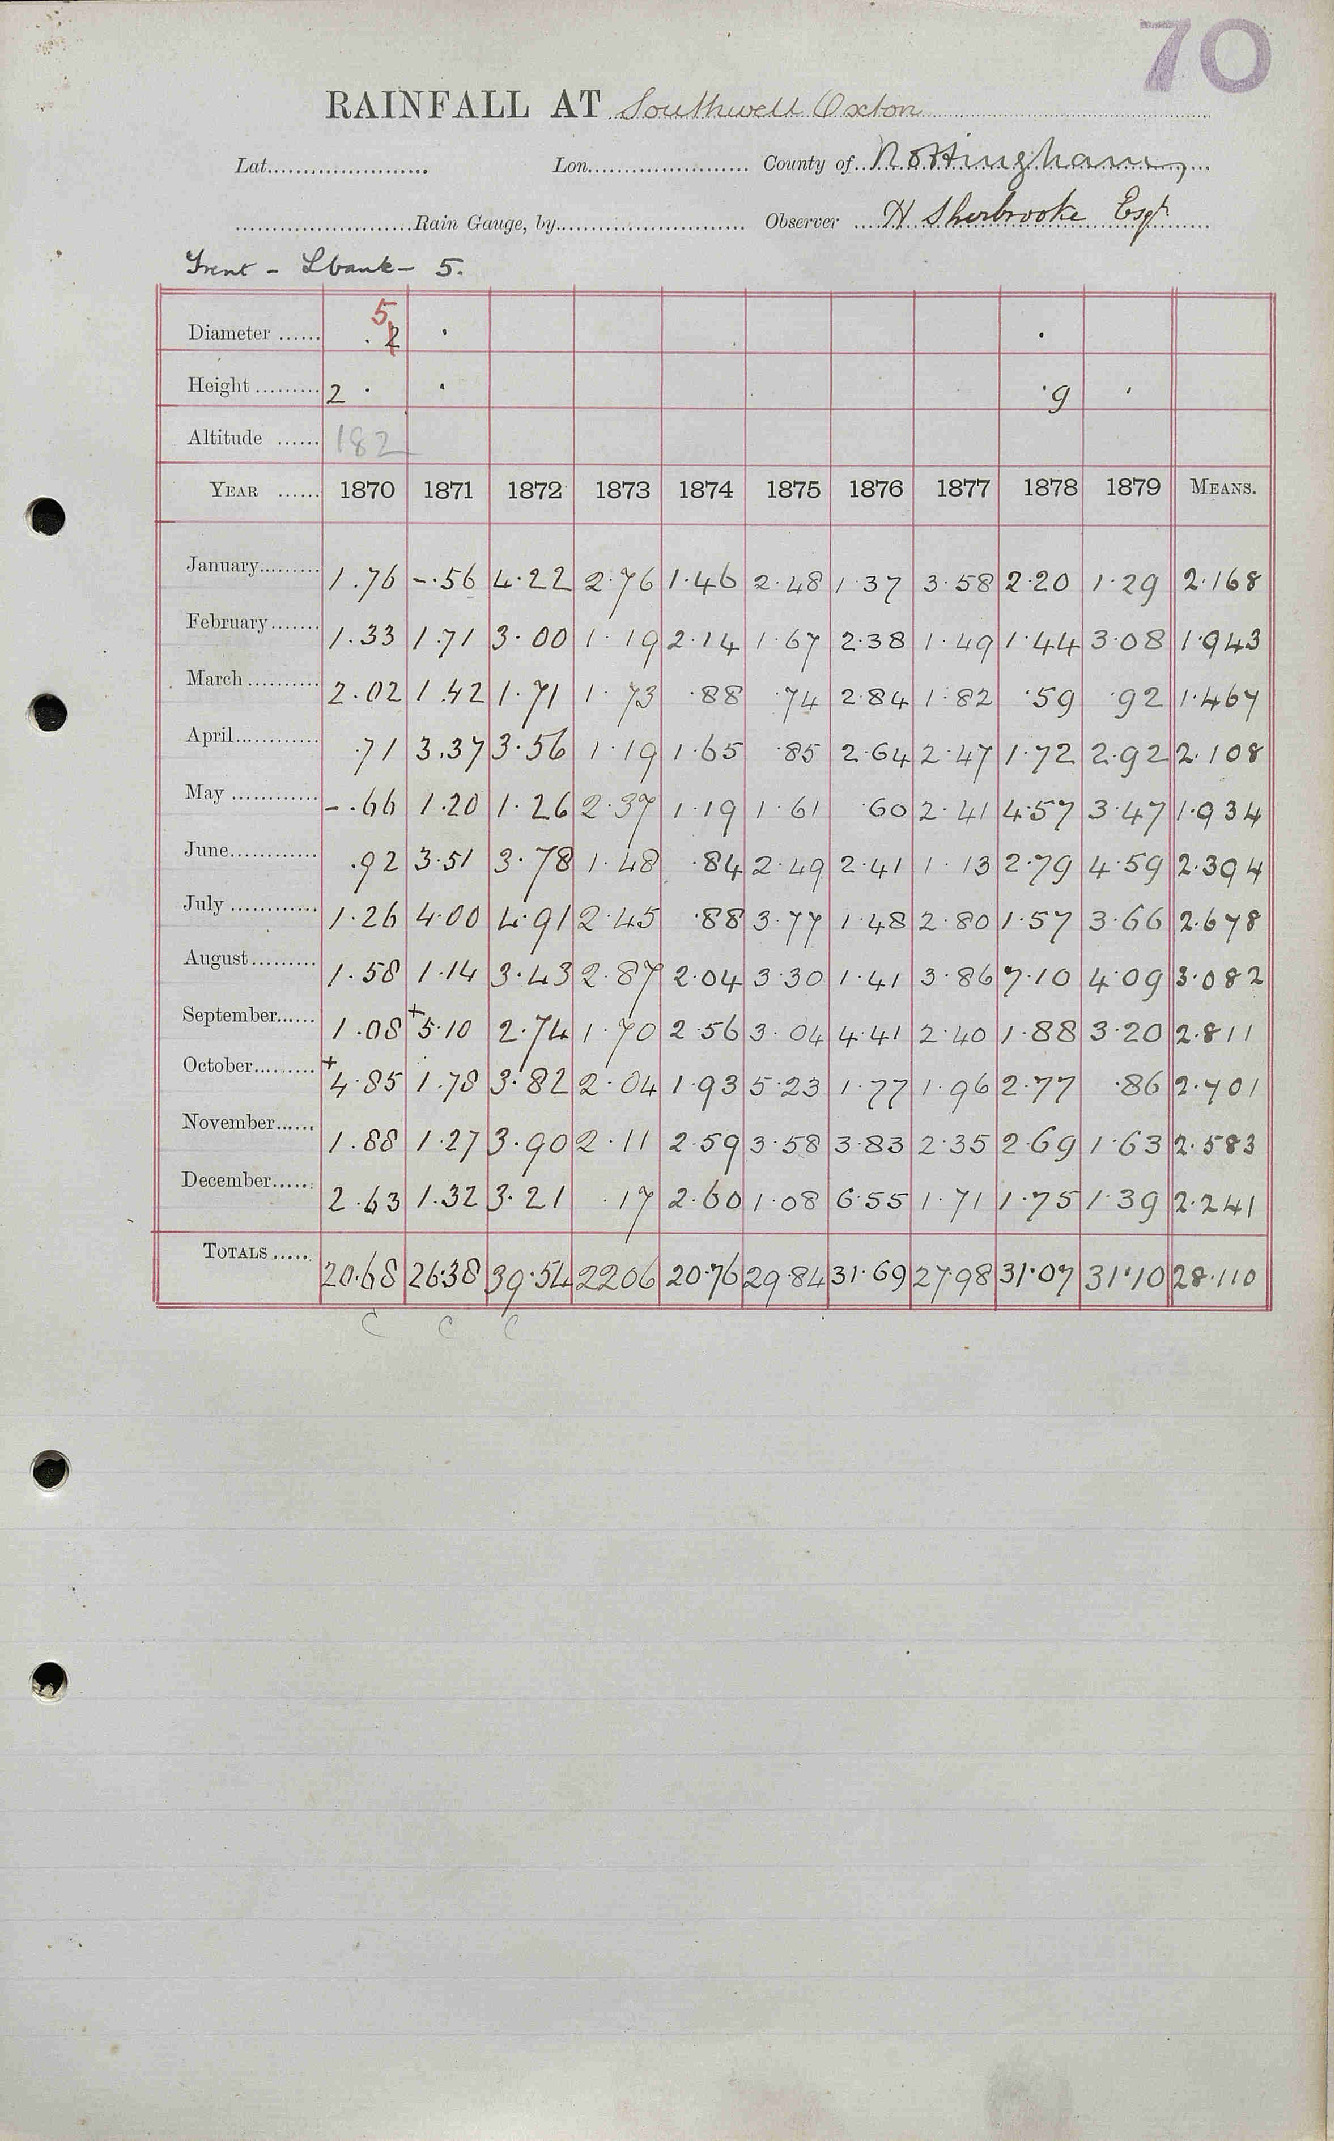 70
RAINFALL AT Southwell Oxton
Lat. Lon. County of Nottingham
Rain Gauge, by Observer H Sherbrooke Esqr
Trent - L bank - 5.
5
Diameter ...... . 2 . .
Height ......... 2 . . . 9 .
Altitude ...... 182
YEAR ...... 1870 1871 1872 1873 1874 1875 1876 1877 1878 1879 MEANS.
January......... 1.76 -.56 4.22 2.76 1.46 2.48 1.37 3.58 2.20 1.29 2.168
February....... 1.33 1.71 3.00 1.19 2.14 1.67 2.38 1.49 1.44 3.08 1.943
March .......... 2.02 1.42 1.71 1.73 .88 .74 2.84 1.82 .59 .92 1.467
April............ .71 3.37 3.56 1.19 1.65 .85 2.64 2.47 1.72 2.92 2.108
May ............ -.66 1.20 1.26 2.37 1.19 1.61 .60 2.41 4.57 3.47 1.934
June............ .92 3.51 3.78 1.48 .84 2.49 2.41 1.13 2.79 4.59 2.394
July ............ 1.26 4.00 4.91 2.45 .88 3.77 1.48 2.80 1.57 3.66 2.678
August......... 1.58 1.14 3.43 2.87 2.04 3.30 1.41 3.86 7.10 4.09 3.082
September...... 1.08 +5.10 2.74 1.70 2.56 3.04 4.41 2.40 1.88 3.20 2.811
October......... +4.85 1.78 3.82 2.04 1.93 5.23 1.77 1.96 2.77 .86 2.701
November...... 1.88 1.27 3.90 2.11 2.59 3.58 3.83 2.35 2.69 1.63 2.583
December...... 2.63 1.32 3.21 .17 2.60 1.08 6.55 1.71 1.75 1.39 2.241
TOTALS ..... 20.68 26.38 39.54 22.06 20.76 29.84 31.69 27.98 31.07 31.10 28.110
C C C